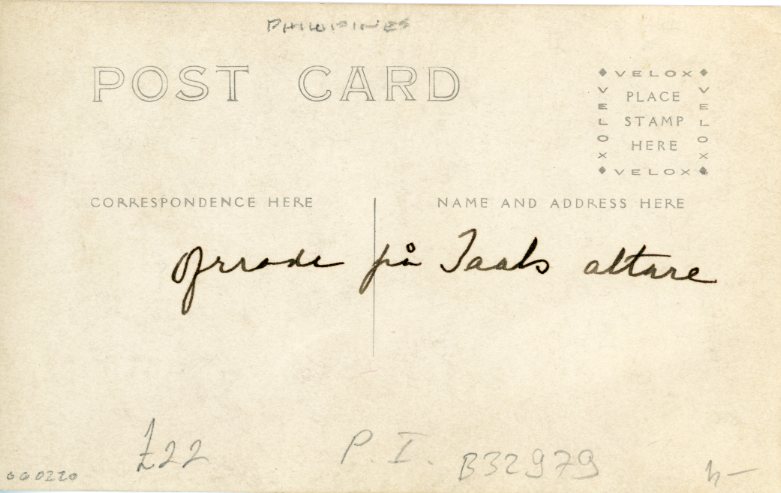 PHILIPPINES
POST CARD
VELOX
VELOX
VELOX
VELOX
PLACE
STAMP
HERE
CORRESPONDENCE HERE
NAME AND ADDRESS HERE
offrade på Taals altare
£22
P. I.
B32979